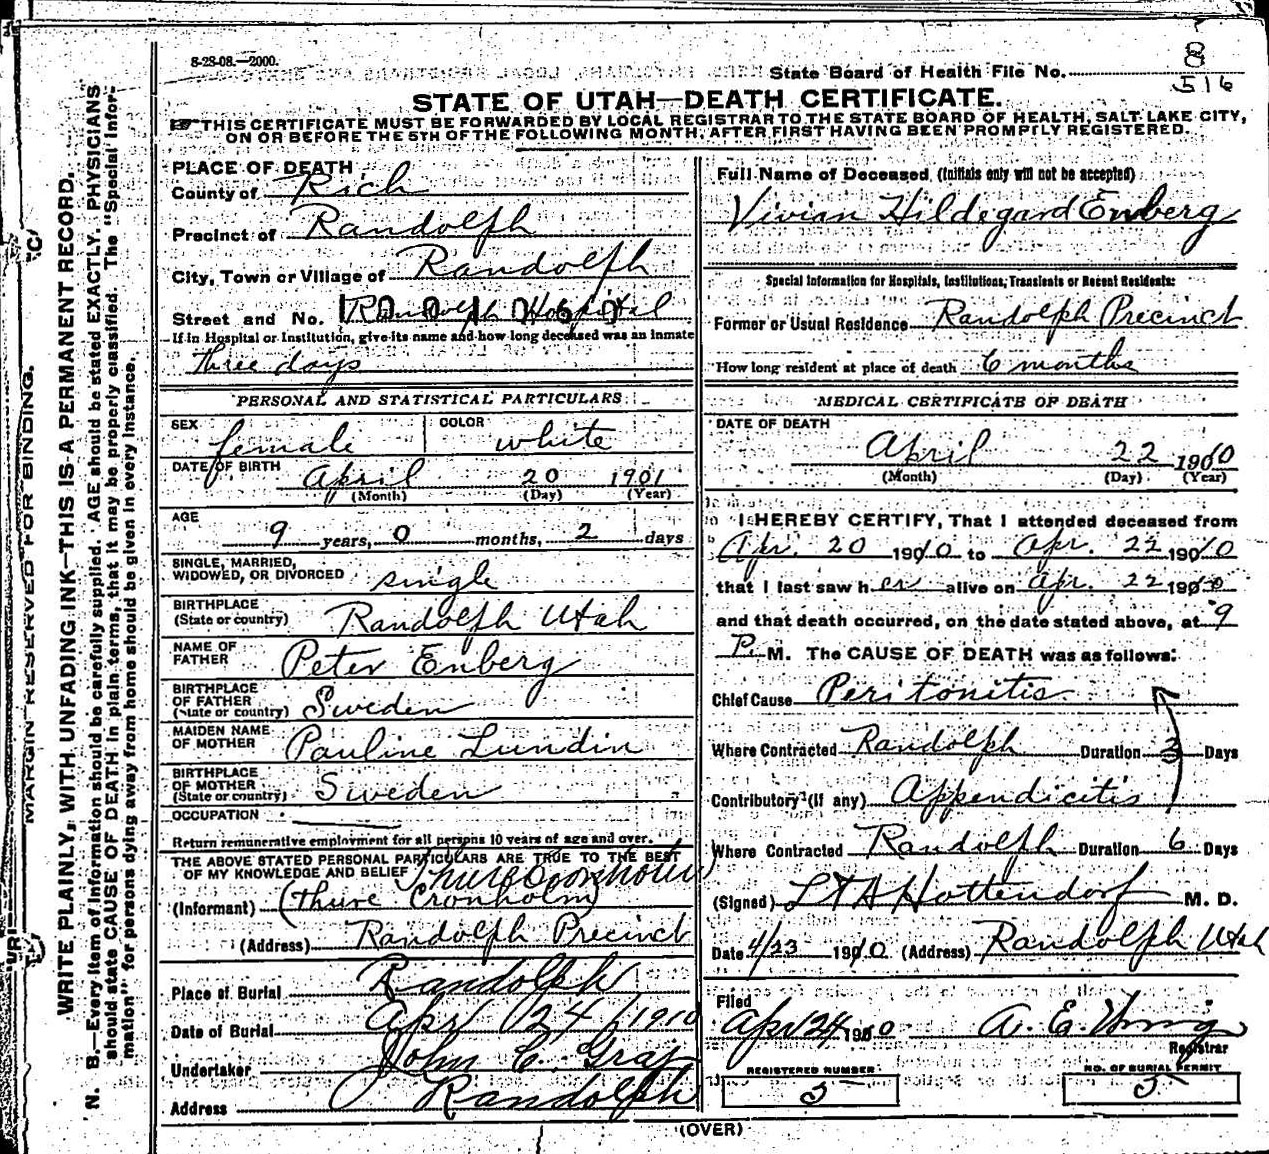 8-28-08.—2000.
State Board of Health File No. 8
516
STATE OF UTAH—DEATH CERTIFICATE.
THIS CERTIFICATE MUST BE FORWARDED BY LOCAL REGISTRAR TO THE STATE BOARD OF HEALTH, SALT LAKE CITY,
ON OR BEFORE THE 5TH OF THE FOLLOWING MONTH, AFTER FIRST HAVING BEEN PROMPTLY REGISTERED.
MARGIN RESERVED FOR BINDING.
WRITE PLAINLY, WITH UNFADING INK—THIS IS A PERMANENT RECORD.
N. B.—Every item of information should be carefully supplied. AGE should be stated EXACTLY. PHYSICIANS
should state CAUSE OF DEATH in plain terms, that it may be properly classified. The "Special Infor-
mation" for persons dying away from home should be given in every instance.
PLACE OF DEATH
County of Rich
Precinct of Randolph
City, Town or Village of Randolph
Street and No. Randolph Hospital
If in Hospital or Institution, give its name and how long deceased was an inmate
three days
PERSONAL AND STATISTICAL PARTICULARS
SEX female COLOR white
DATE OF BIRTH April 20 1901
(Month) (Day) (Year)
AGE
9 years, 0 months, 2 days
SINGLE, MARRIED,
WIDOWED, OR DIVORCED single
BIRTHPLACE
(State or country) Randolph Utah
NAME OF
FATHER Peter Enberg
BIRTHPLACE
OF FATHER
(State or country) Sweden
MAIDEN NAME
OF MOTHER Pauline Lundin
BIRTHPLACE
OF MOTHER
(State or country) Sweden
OCCUPATION
Return remunerative employment for all persons 10 years of age and over.
THE ABOVE STATED PERSONAL PARTICULARS ARE TRUE TO THE BEST
OF MY KNOWLEDGE AND BELIEF Thure Cronholm
(Informant) (Thure Cronholm)
(Address) Randolph Precinct
Place of Burial Randolph
Date of Burial Apr 24 1910
Undertaker John C. Gray
Address Randolph
Full Name of Deceased (Initials only will not be accepted)
Vivian Hildegard Enberg
Special Information for Hospitals, Institutions, Transients or Recent Residents:
Former or Usual Residence Randolph Precinct
How long resident at place of death 6 months
MEDICAL CERTIFICATE OF DEATH
DATE OF DEATH
April 22 1910
(Month) (Day) (Year)
I HEREBY CERTIFY, That I attended deceased from
Apr. 20 1910 to Apr. 22 1910
that I last saw her alive on Apr. 22 1910
and that death occurred, on the date stated above, at 9
P. M. The CAUSE OF DEATH was as follows:
Chief Cause Peritonitis
Where Contracted Randolph Duration 3 Days
Contributory (if any) Appendicitis
Where Contracted Randolph Duration 6 Days
(Signed) Hottendorf M. D.
Date 4/23 1910 (Address) Randolph Utah
Filed
Apr 24 1910 A. E.
Registrar
REGISTERED NUMBER
5
NO. OF BURIAL PERMIT
5
(OVER)